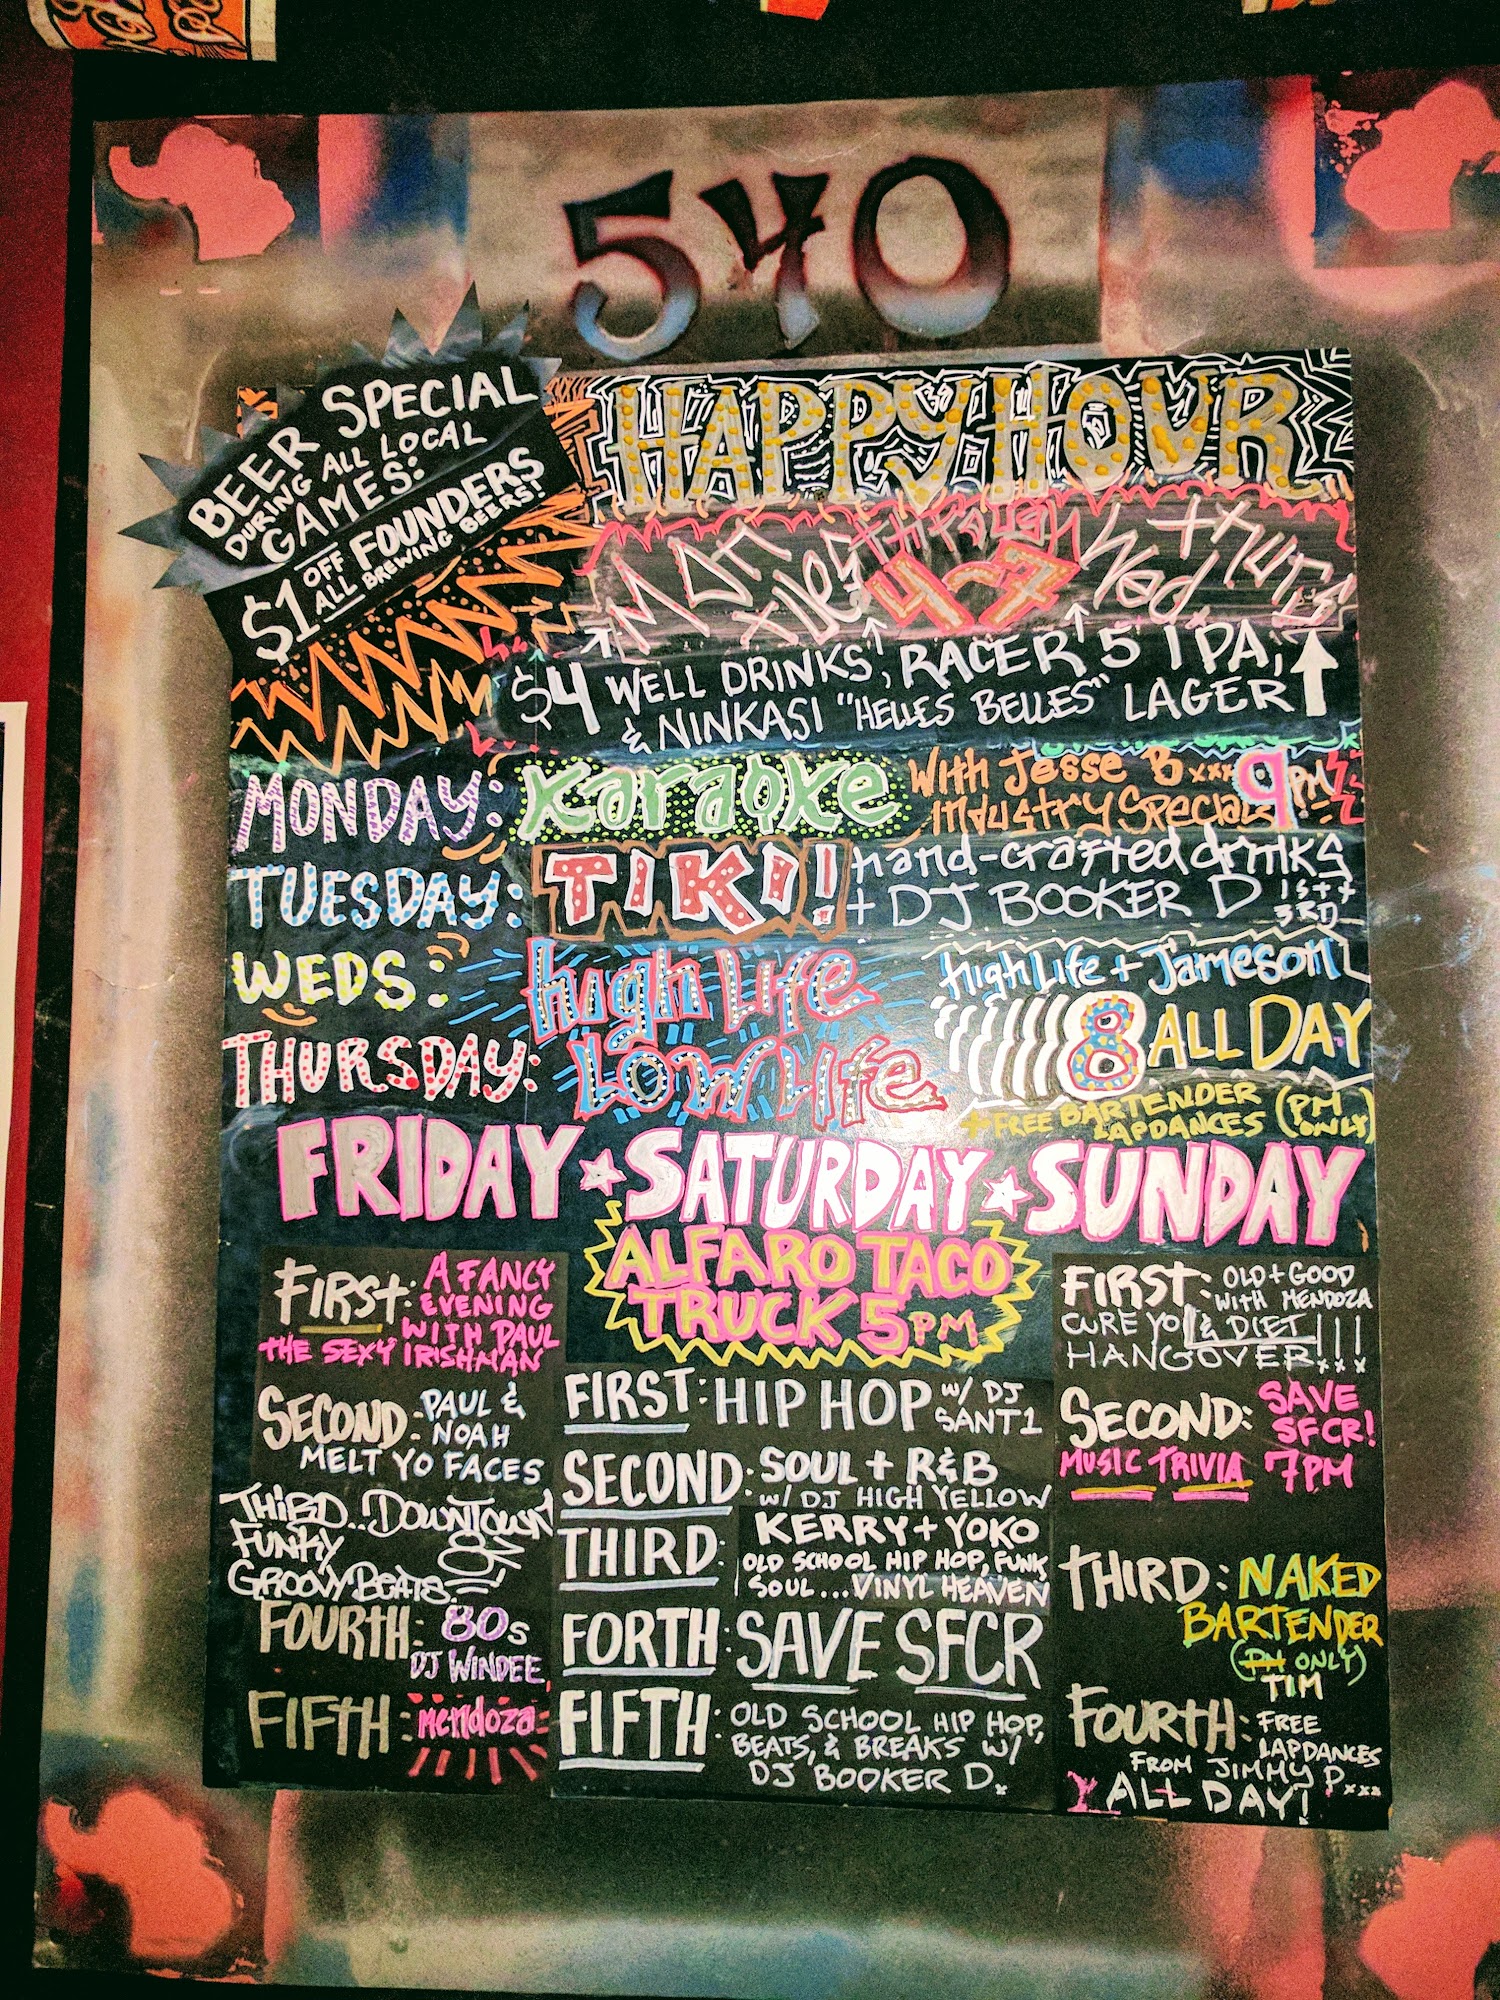 540
BEER SPECIAL
DURING ALL LOCAL
GAMES:
$1 OFF ALL FOUNDERS
BREWING BEERS!
HAPPY HOUR
through
4-7
Wed. + thurs
$4 WELL DRINKS, RACER 5 IPA,
& NINKASI "HELLES BELLES" LAGER
MONDAY: Karaoke With Jesse B xxx 9PM
Industry Specials
TUESDAY: TIKI! hand-crafted drinks
+ DJ BOOKER D 1st + 3RD
WEDS: high Life high Life + Jameson
THURSDAY: Low Life 8 ALL DAY
+ FREE BARTENDER LAPDANCES (PM ONLY)
FRIDAY ★ SATURDAY ★ SUNDAY
FIRST: A FANCY
EVENING
WITH PAUL
THE SEXY IRISHMAN
SECOND: PAUL &
NOAH
MELT YO FACES
THIRD.. DOWNTOWN
FUNKY
GROOVY BEATS
FOURTH: 80s
DJ WINDEE
FIFTH: Mendoza
ALFARO TACO
TRUCK 5PM
FIRST: HIP HOP W/ DJ
SANT1
SECOND: SOUL + R&B
W/ DJ HIGH YELLOW
THIRD: KERRY + YOKO
OLD SCHOOL HIP HOP, FUNK
SOUL...VINYL HEAVEN
FORTH: SAVE SFCR
FIFTH: OLD SCHOOL HIP HOP,
BEATS, & BREAKS W/
DJ BOOKER D.
FIRST: OLD + GOOD
WITH MENDOZA
CURE YO L& DIET
HANGOVER!!! xxx
SECOND: SAVE
SFCR!
MUSIC TRIVIA 7PM
THIRD: NAKED
BARTENDER
(PM ONLY)
TIM
FOURTH: FREE
LAPDANCES
FROM JIMMY P.xxx
ALL DAY!